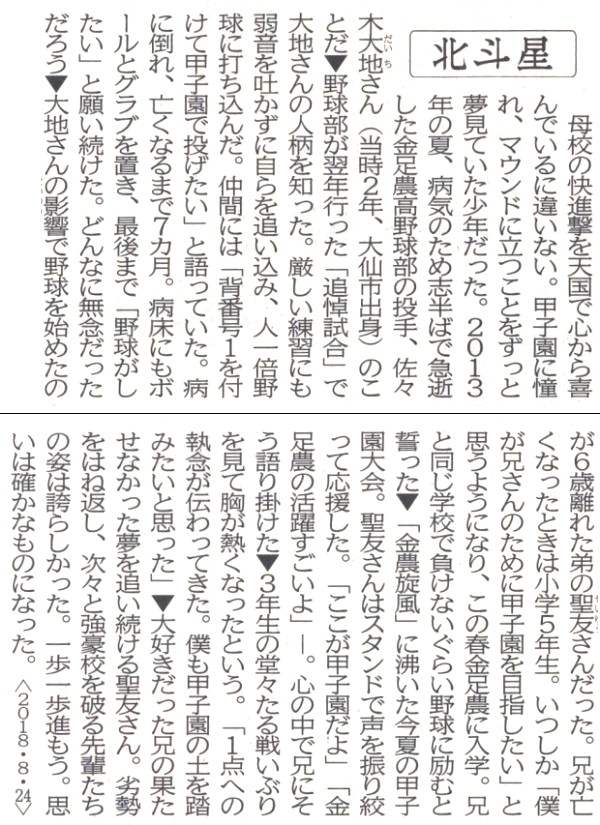 北斗星
母校の快進撃を天国で心から喜
んでいるに違いない。甲子園に憧
れ、マウンドに立つことをずっと
夢見ていた少年だった。２０１３
年の夏、病気のため志半ばで急逝
した金足農高野球部の投手、佐々
木大地さん（当時２年、大仙市出身）のこ
だいち
とだ▼野球部が翌年行った「追悼試合」で
大地さんの人柄を知った。厳しい練習にも
弱音を吐かずに自らを追い込み、人一倍野
球に打ち込んだ。仲間には「背番号１を付
けて甲子園で投げたい」と語っていた。病
に倒れ、亡くなるまで７カ月。病床にもボ
ールとグラブを置き、最後まで「野球がし
たい」と願い続けた。どんなに無念だった
だろう▼大地さんの影響で野球を始めたの
が６歳離れた弟の聖友さんだった。兄が亡
くなったときは小学５年生。いつしか「僕
が兄さんのために甲子園を目指したい」と
思うようになり、この春金足農に入学。兄
と同じ学校で負けないぐらい野球に励むと
誓った▼「金農旋風」に沸いた今夏の甲子
園大会。聖友さんはスタンドで声を振り絞
って応援した。「ここが甲子園だよ」「金
足農の活躍すごいよ」―。心の中で兄にそ
う語り掛けた▼３年生の堂々たる戦いぶり
を見て胸が熱くなったという。「１点への
執念が伝わってきた。僕も甲子園の土を踏
みたいと思った」▼大好きだった兄の果た
せなかった夢を追い続ける聖友さん。劣勢
をはね返し、次々と強豪校を破る先輩たち
の姿は誇らしかった。一歩一歩進もう。思
いは確かなものになった。〈２０１８・８・24〉